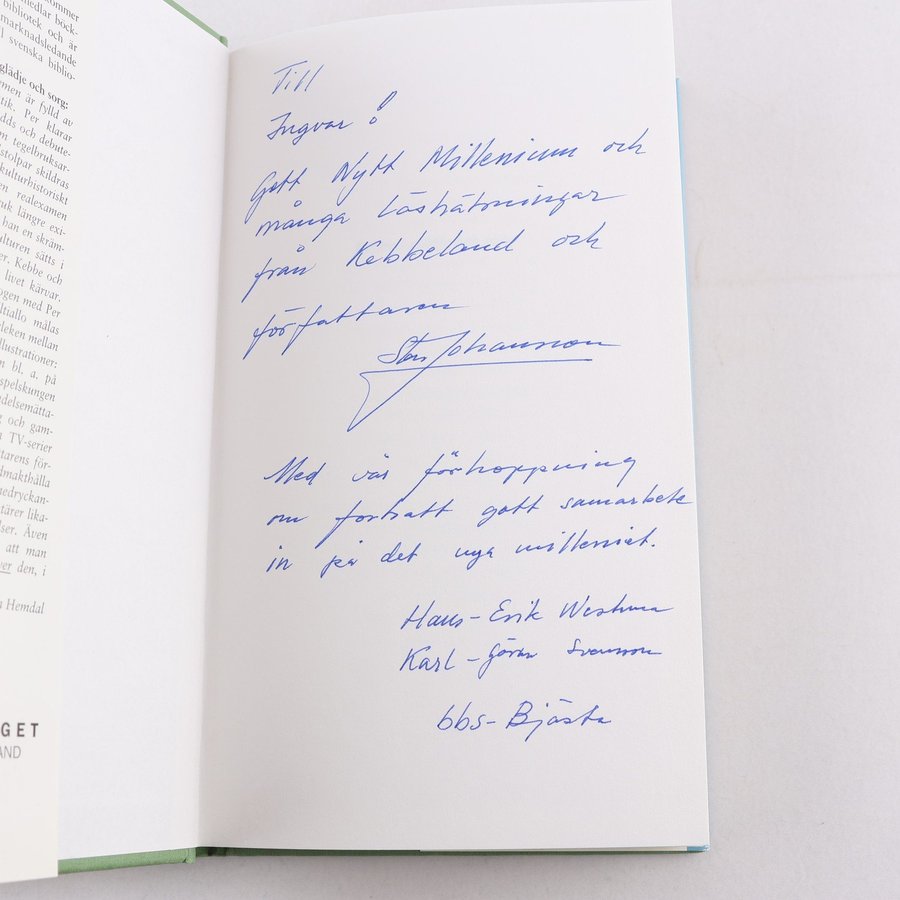 ommer
medlar böck-
bibliotek och är
marknadsledande
ll svenska biblio-
glädje och sorg:
men är fylld av
tik. Per klarar
dds och debute-
n tegelbruksar-
stolpar skildras
kulturhistoriskt
en realexamen
uk längre exi-
han en skräm-
lturen sätts i
er. Kebbe och
livet kärvar.
ogen med Per
ltiallo målas
rleken mellan
llustrationer:
n bl. a. på
spelskungen
delsemätta-
g och gam-
TV-serier
ttarens för-
dmakthålla
nedryckan-
tärer lika-
lser. Även
att man
ver den, i
Hemdal
GET
AND
Till
Ingvar!
Gott Nytt Millenium och
många lästräningar
från Kebbeland och
författaren
Sten Johansson
Med vår förhoppning
om fortsatt gott samarbete
in på det nya milleniet.
Hans-Erik Westman
Karl-Göran Svensson
bbs-Bjästa